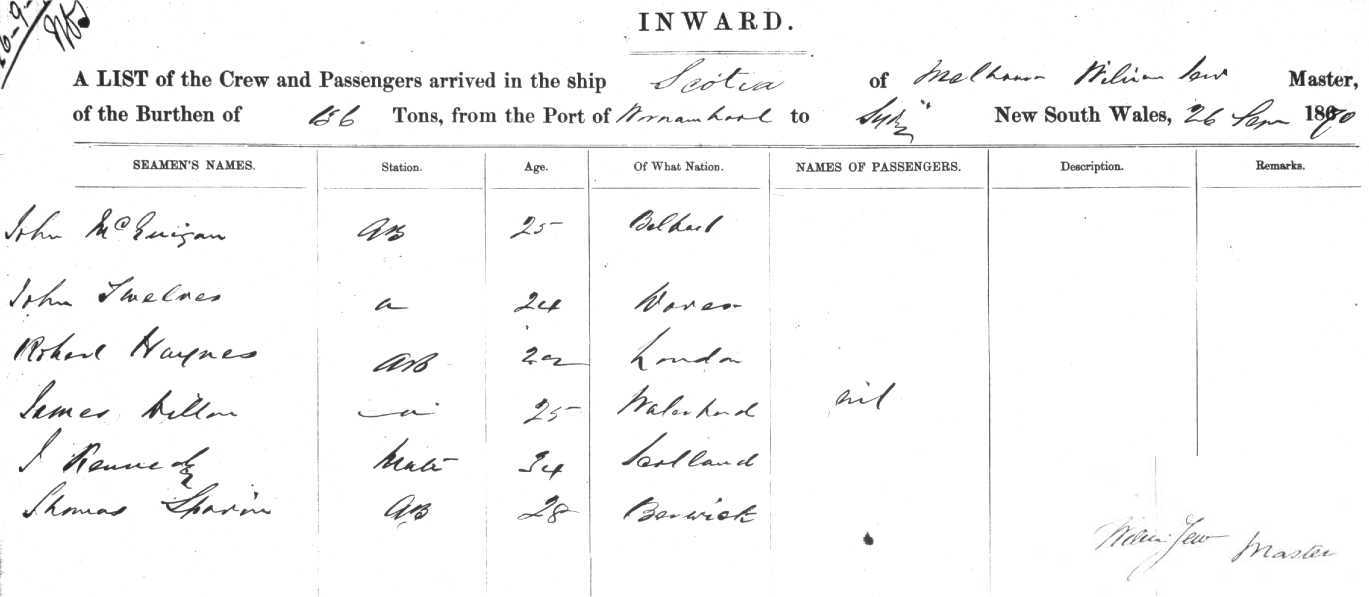 INWARD.
A LIST of the Crew and Passengers arrived in the ship Scotia of Melbourne William Jew Master,
of the Burthen of 156 Tons, from the Port of Warrnambool to Sydney New South Wales, 26 Sepr 1870
SEAMEN'S NAMES. Station. Age. Of What Nation. NAMES OF PASSENGERS. Description. Remarks.
John McGuigan AB 25 Belfast
John Twelves 24
Robert Haynes AB 22 London
James Dillon 25 Waterford nil
J Kennedy Mate 34 Scotland
Thomas AB 28 Berwick
Jew Master